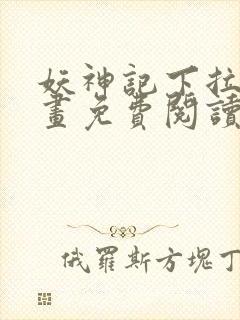 妖神記下拉
畫免費閱讀
俄羅斯方塊丁